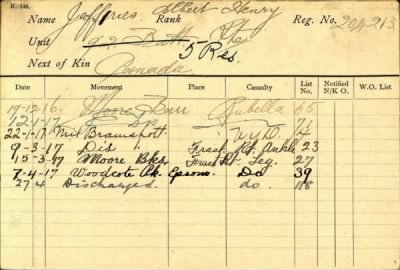 R.-149.
Name Jafferies, Albert Henry Rank Reg. No. 204213
Unit Batt. Pte 5 Res.
Next of Kin Canada
Date Movement Place Casualty List No. Notified N/K O. W.O. List
19-12-16. Moore Barr Rubella 65
12-1-17 71
22-1-17 Mil Bramshott. N.Y.D. 74
9-3-17 Dis " Fract Rt. Ankle 23
15-3-17 Moore Bks Fract Rt. Leg. 27
7-4-17 Woodcote Pk. Epsom. Do 39
27 4 Discharged. do. 118